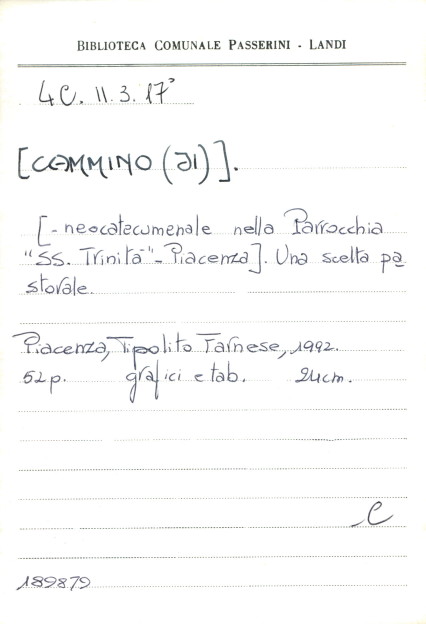 BIBLIOTECA COMUNALE PASSERINI - LANDI
4C. II. 3. 17³
[CAMMINO (Il)].
[- neocatecumenale nella Parrocchia
"SS. Trinità" - Piacenza]. Una scelta pa
storale.
Piacenza, Tipolito Farnese, 1992.
52 p. grafici e tab. 24 cm.
C
189879